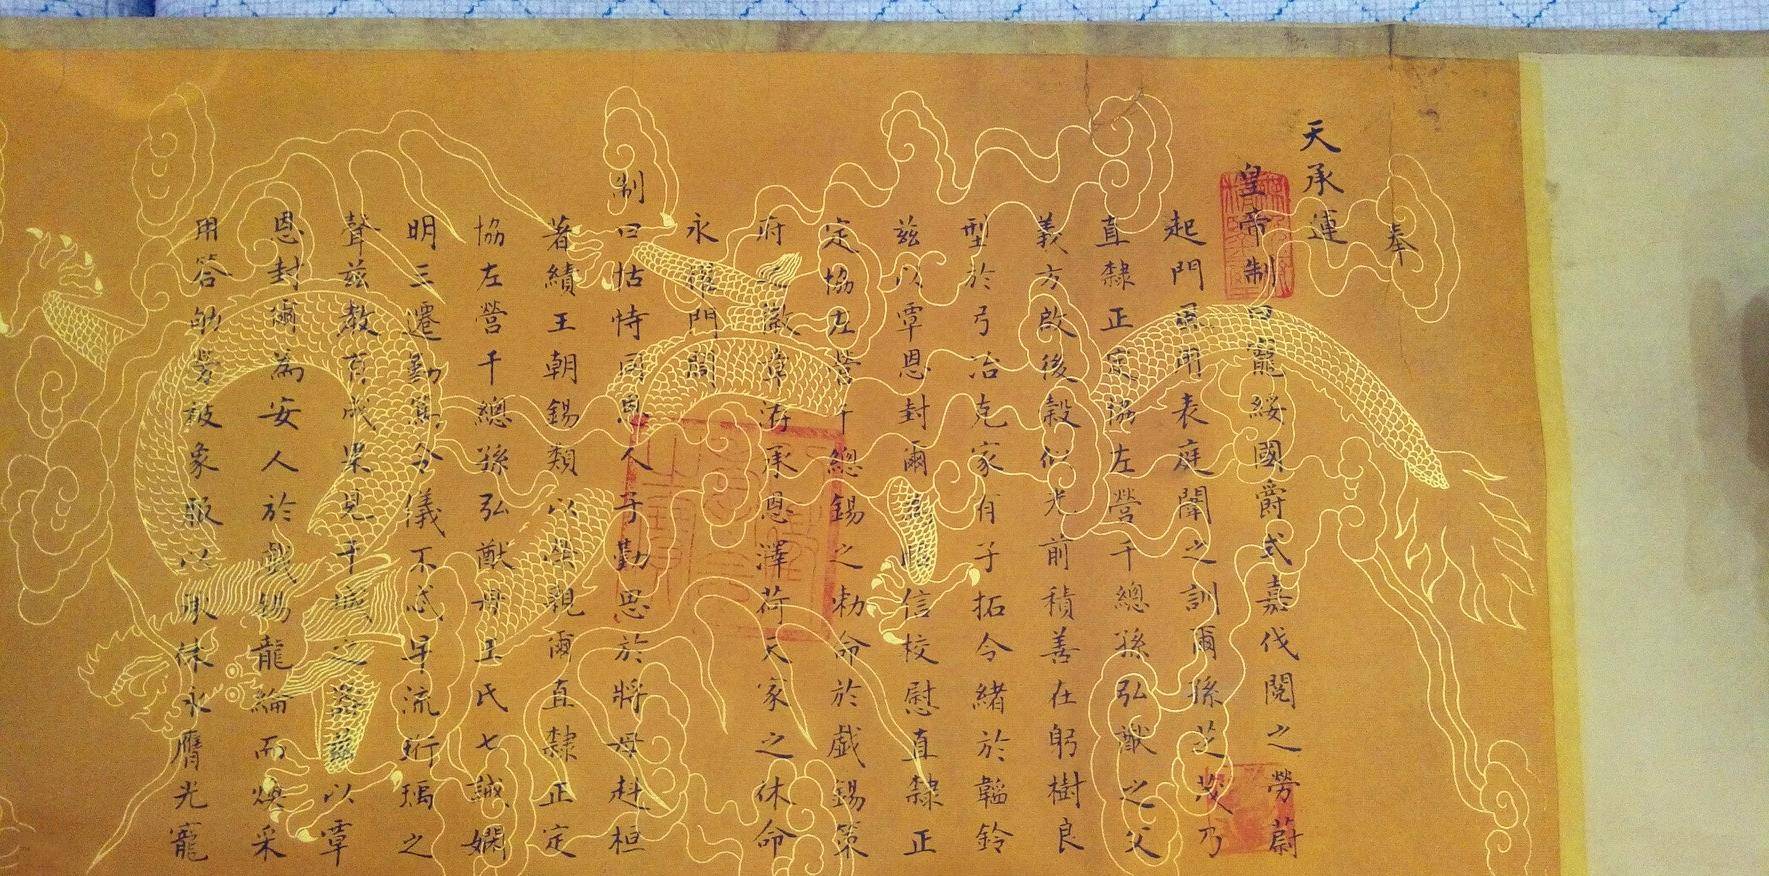 奉
天承運
皇帝制曰寵綏國爵式嘉伐閱之勞蔚
起門風用表庭闈之訓爾孫芝茂乃
直隸正定協左營千總孫弘猷之父
義方啟後穀似光前積善在躬樹良
型於弓冶克家有子拓令緒於韜鈐
茲以覃恩封爾為昭信校尉直隸正
定協左營千總錫之勅命於戲錫策
府之徽章洊承恩澤荷天家之休命
永耀門閭
制曰怙恃同恩人子勤思於將母赳桓
著績王朝錫類以榮親爾直隸正定
協左營千總孫弘猷母王氏七誡嫻
明三遷勤篤令儀不忒早流珩瑀之
聲茲教有成果見干城之器茲以覃
恩封爾為安人於戲錫龍綸而煥采
用答劬勞被象服以承休永膺光寵